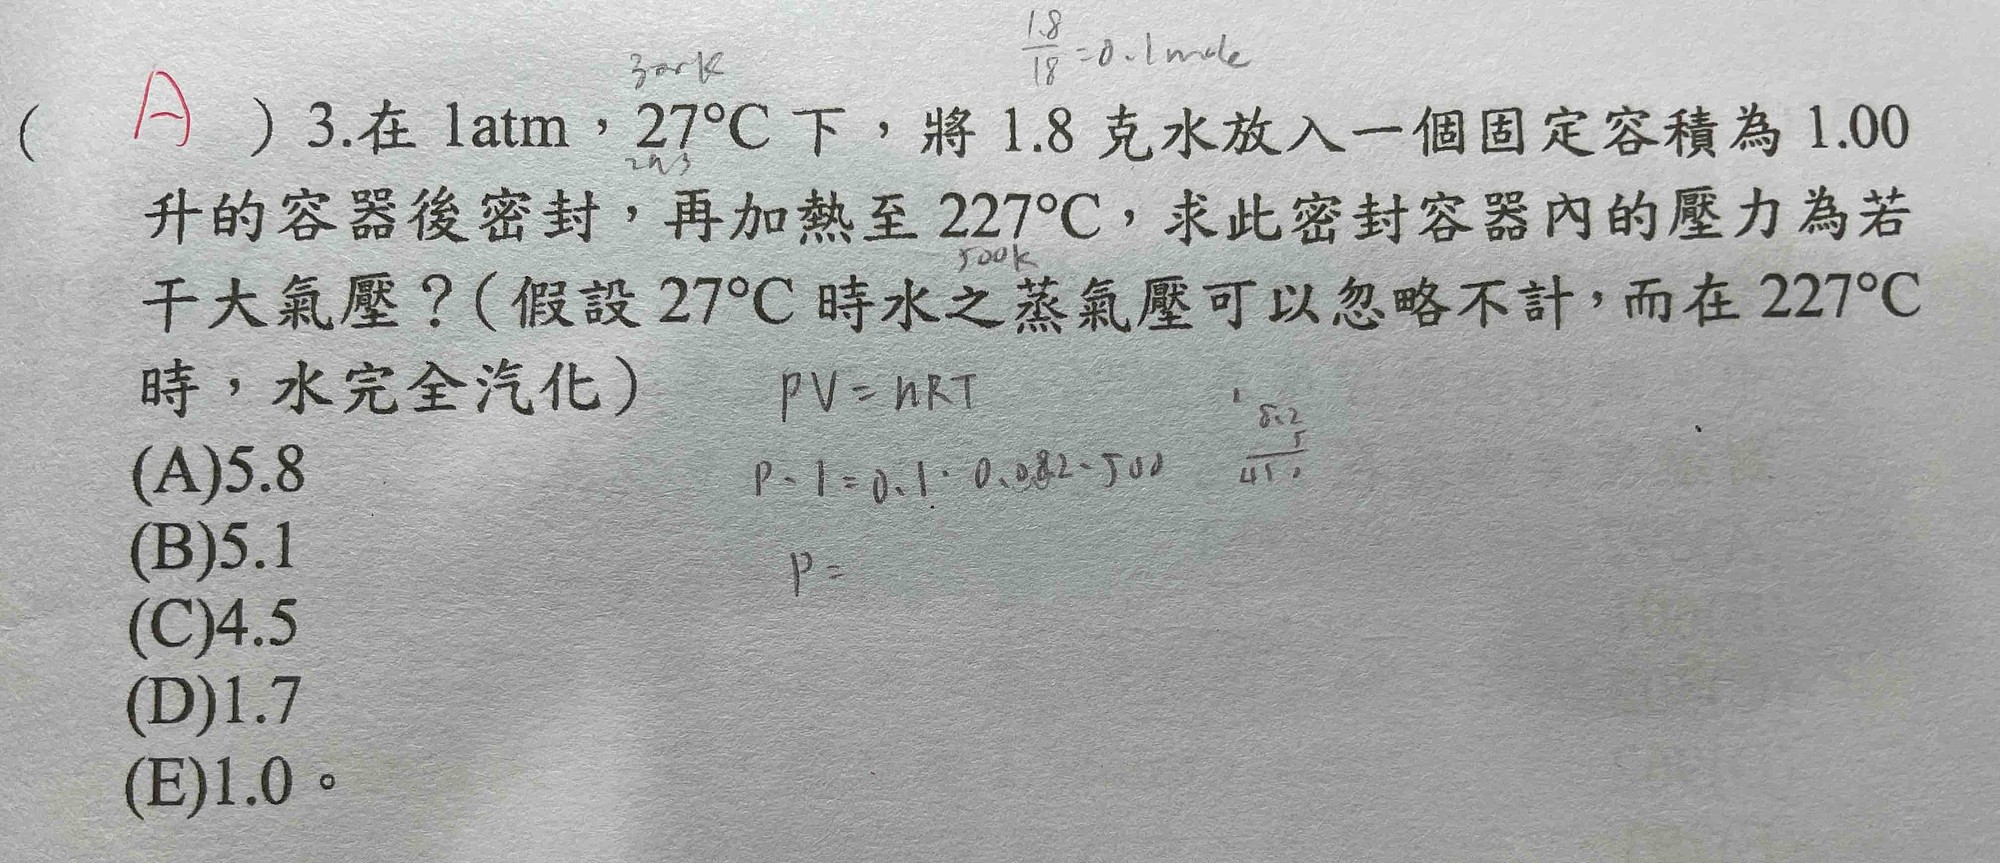 300K
1.8/18=0.1mole
( A ) 3.在 1atm，27°C 下，將 1.8 克水放入一個固定容積為 1.00
273
升的容器後密封，再加熱至 227°C，求此密封容器內的壓力為若
500K
干大氣壓？(假設 27°C 時水之蒸氣壓可以忽略不計，而在 227°C
時，水完全汽化)
PV=nRT
(A)5.8
P·1=0.1·0.082·500
8.2
5
(B)5.1
P=
(C)4.5
(D)1.7
(E)1.0。